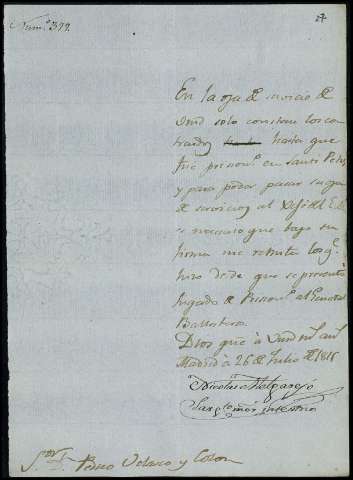 Num.º 399.
27
En la oja de servicio de
Vmd solo constan los con
trahidos hasta que
fue prision.º en Santi Petri
y para poder pasar su oja
de servicios al
es necesario que bajo su
firma me remita los q.e
hizo desde que se presentó
fugado de Prision.º al General
Ballesteros.
Dios gue à Vmd m.s an.s
Madrid à 26 de Julio de 1815
Nicolas Melgarejo
Sarg.to mor interino
S.or D. Pedro Velasco y Colon